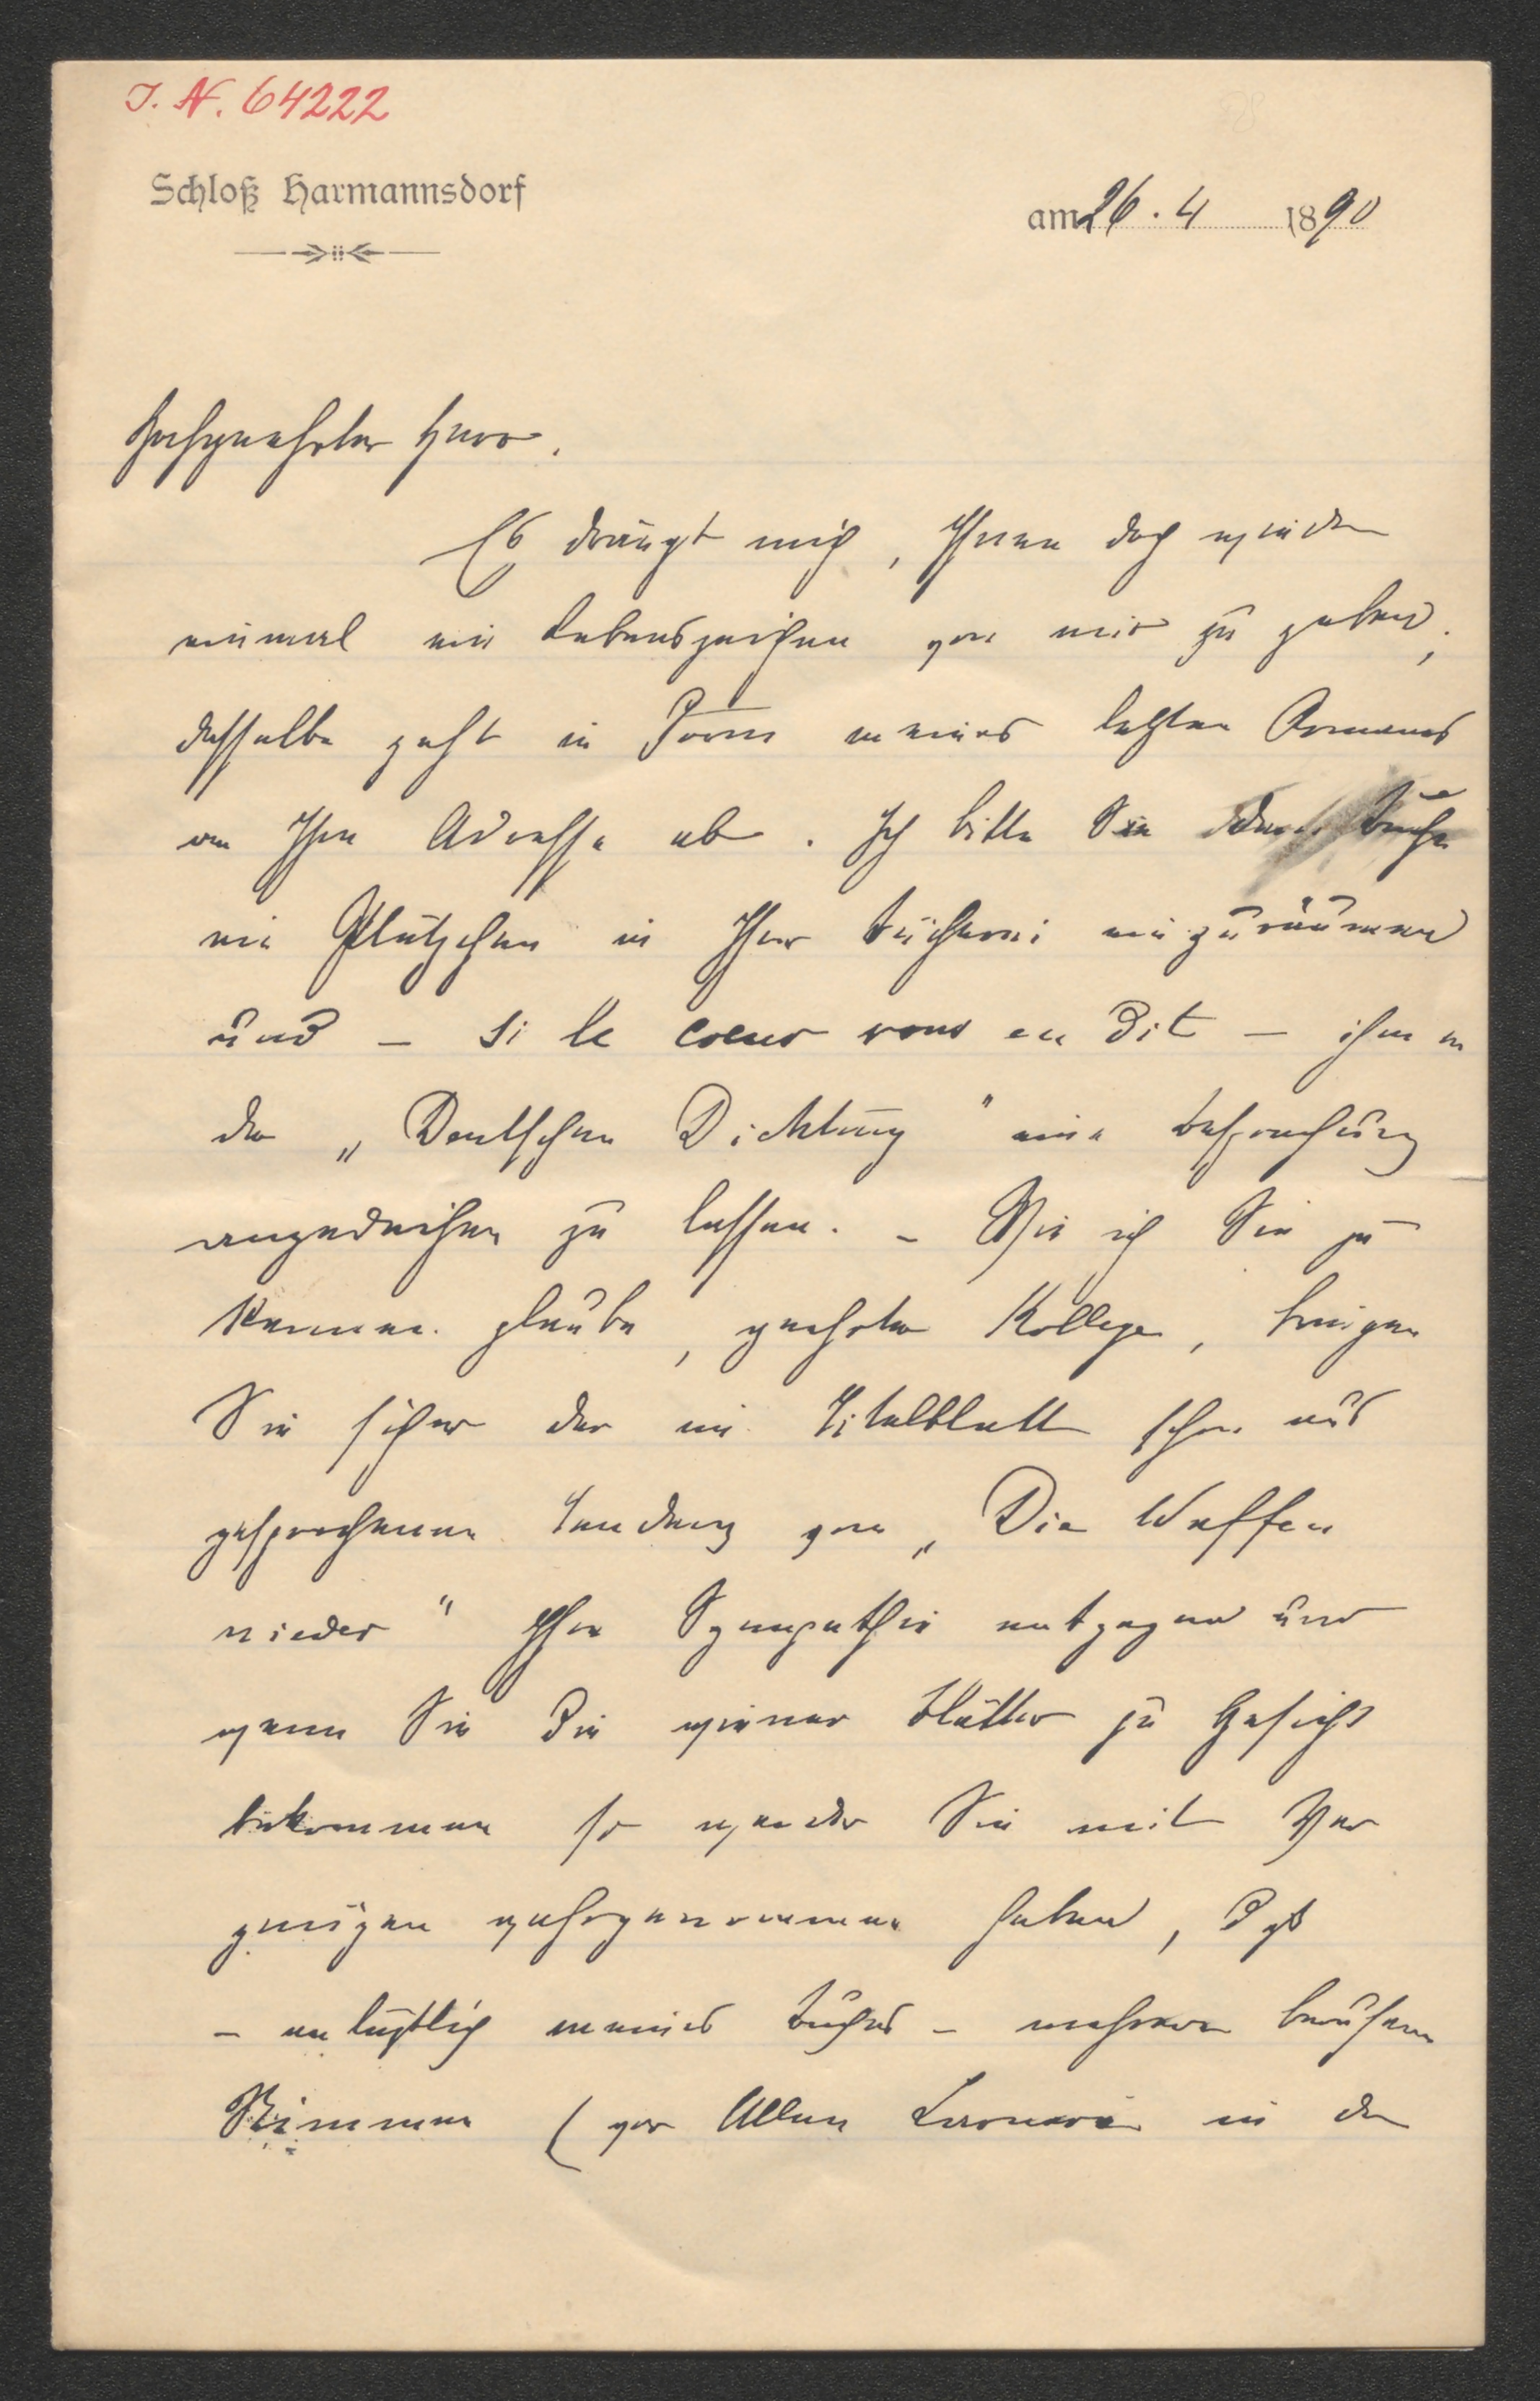 J. N. 64222
Schloß Harmannsdorf
am 26. 4 1890
Hochgeehrter Herr.
Es drängt mich, Ihnen doch wieder
einmal ein Lebenszeichen von mir zu geben;
dasselbe geht in Form meines letzten Romans
an Ihre Adresse ab. Ich bitte Sie dem Buche
ein Plätzchen in Ihrer Bücherei einzuräumen
und – si le coeur vous en dit – ihm in
der „Deutschen Dichtung" eine Besprechung
angedeihen zu lassen. – Wie ich Sie zu
kennen glaube, geehrter Kollege, bringen
Sie sicher der im Titelblatt schon aus
gesprochenen Tendenz von „Die Waffen
nieder" Ihre Sympathie entgegen und
wenn Sie die wiener Blätter zu Gesicht
bekommen so werden Sie mit Ver
gnügen wahrgenommen haben, daß
– anläßlich meines Buches – mehrere berufene
Stimmen (vor Allen Carneri in der